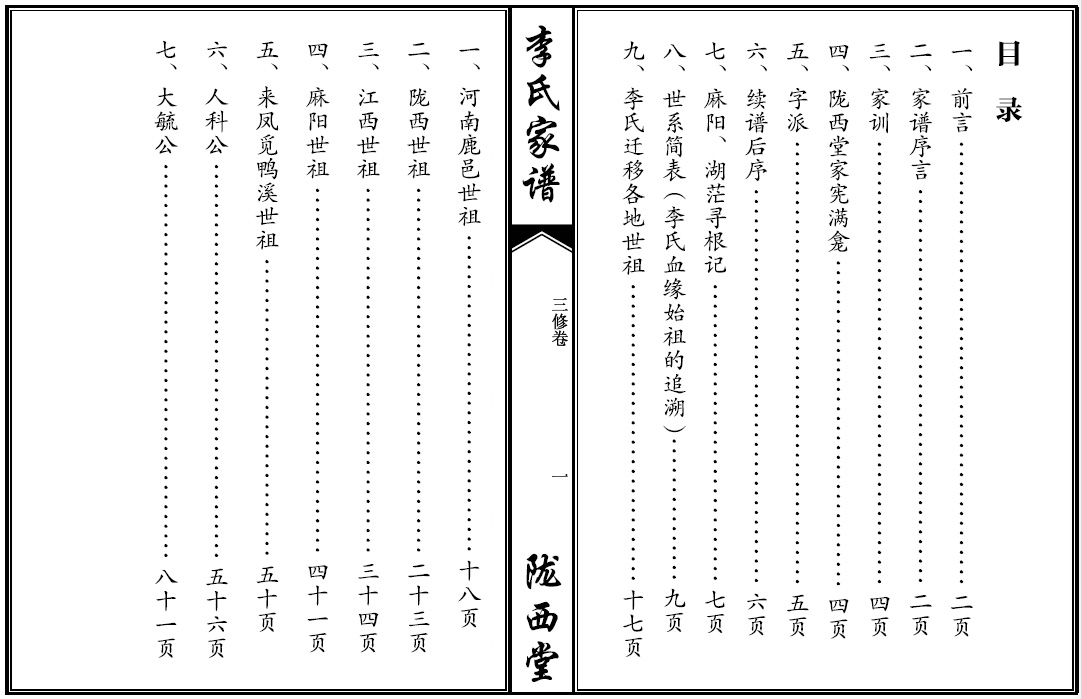 目录
一、前言……………………二页
二、家谱序言……………………二页
三、家训……………………四页
四、陇西堂家宪满龛……………………四页
五、字派……………………五页
六、续谱后序……………………六页
七、麻阳、湖茫寻根记……………………七页
八、世系简表(李氏血缘始祖的追溯)……………………九页
九、李氏迁移各地世祖……………………十七页
李氏家谱
三修卷
一
陇西堂
一、河南鹿邑世祖……………………十八页
二、陇西世祖……………………二十三页
三、江西世祖……………………三十四页
四、麻阳世祖……………………四十一页
五、来凤觅鸭溪世祖……………………五十页
六、人科公……………………五十六页
七、大毓公……………………八十一页